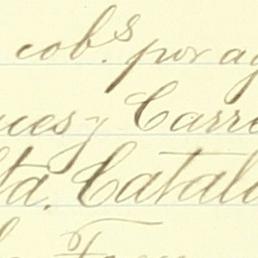 cob.s por ag
ces y Carre
ta. Catal